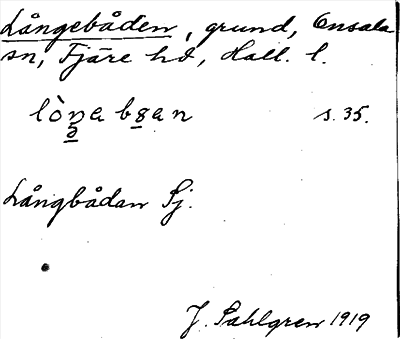 Långebåden, grund, Onsala
sn, Fjäre hd, Hall. l.
s. 35.
Långbådan Sj.
J. Sahlgren 1919